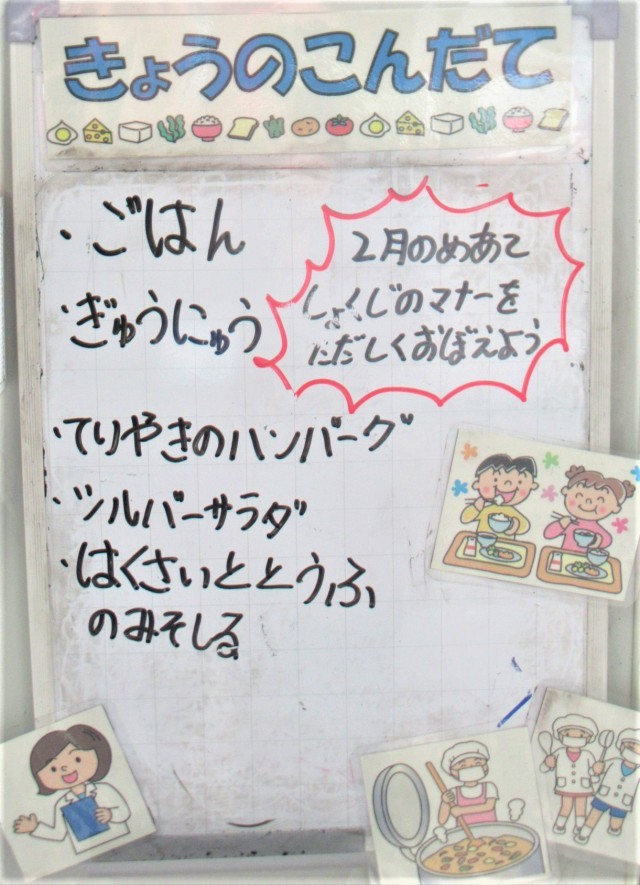 きょうのこんだて
・ごはん
・ぎゅうにゅう
2月のめあて
しょくじのマナーを
ただしくおぼえよう
・てりやきのハンバーグ
・シルバーサラダ
・はくさいととうふ
のみそしる